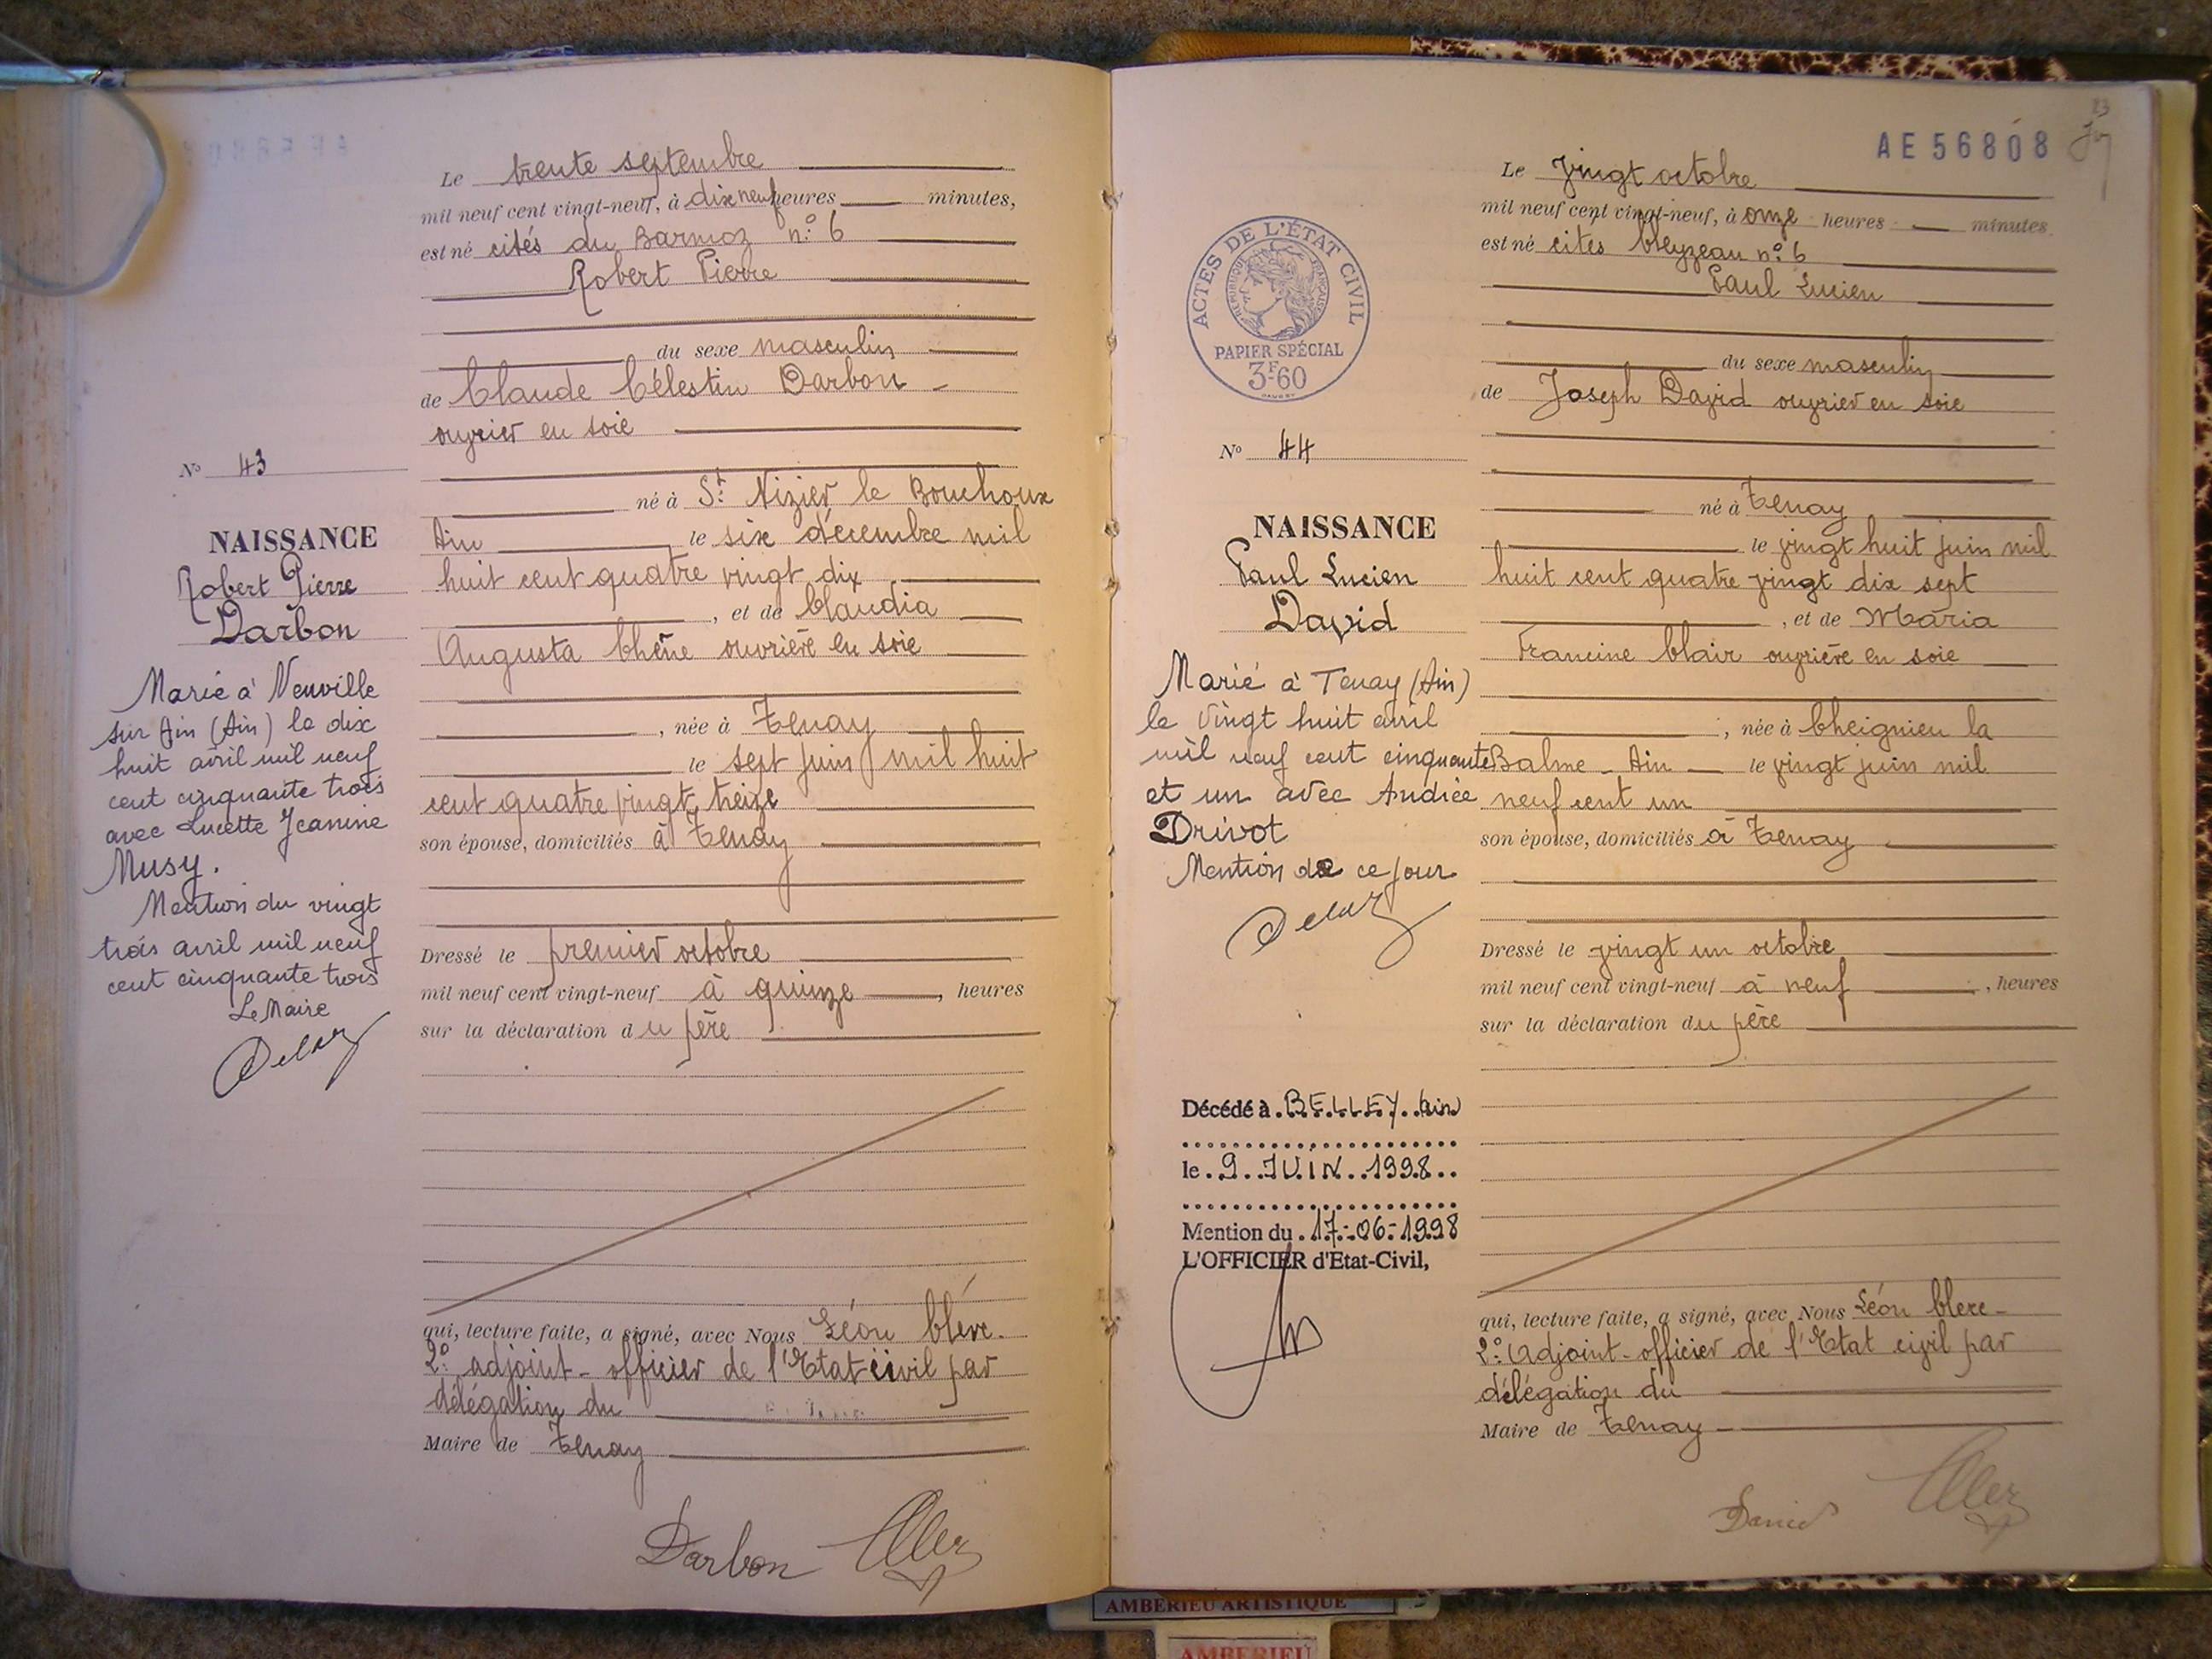 Le trente septembre
mil neuf cent vingt-neuf, à dix neuf heures minutes,
est né cités du Barmoz n° 6
Robert Pierre
du sexe masculin
de Claude Célestin Darbon
ouvrier en soie
N° 43
né à St Nizier le Bouchoux
Ain le six décembre mil
huit cent quatre vingt dix
, et de Claudia
Augusta Chêne ouvrière en soie
, née à Tenay
le sept juin mil huit
cent quatre vingt treize
son épouse, domiciliés à Tenay
Dressé le premier octobre
mil neuf cent vingt-neuf à quinze , heures
sur la déclaration du père
qui, lecture faite, a signé, avec Nous Léon Clerc
2° adjoint - officier de l'Etat civil par
délégation du
Maire de Tenay
Darbon
NAISSANCE
Robert Pierre
Darbon
Marié à Neuville
sur Ain (Ain) le dix
huit avril mil neuf
cent cinquante trois
avec Lucette Jeanine
Musy.
Mention du vingt
trois avril mil neuf
cent cinquante trois
Le Maire
AE 56808
23
Le vingt octobre
mil neuf cent vingt-neuf, à onze heures minutes
est né cités Cleyzeau n° 6
Paul Lucien
du sexe masculin
de Joseph David ouvrier en soie
né à Tenay
le vingt huit juin mil
huit cent quatre vingt dix sept
, et de Maria
Francine Clair ouvrière en soie
, née à Cheignieu la
Balme - Ain le vingt juin mil
neuf cent un
son épouse, domiciliés à Tenay
Dressé le vingt un octobre
mil neuf cent vingt-neuf à neuf , heures
sur la déclaration du père
qui, lecture faite, a signé, avec Nous Léon Clerc
2° adjoint - officier de l'Etat civil par
délégation du
Maire de Tenay
David
ACTES DE L'ÉTAT CIVIL
RÉPUBLIQUE FRANÇAISE
PAPIER SPÉCIAL
3F60
N° 44
NAISSANCE
Paul Lucien
David
Marié à Tenay (Ain)
le vingt huit avril
mil neuf cent cinquante
et un avec Andrée
Drivot
Mention de ce jour
Décédé à BELLEY Ain
le 9 JUIN 1998
Mention du 17-06-1998
L'OFFICIER d'Etat-Civil,
AMBERIEU ARTISTIQUE
AMBERIEU